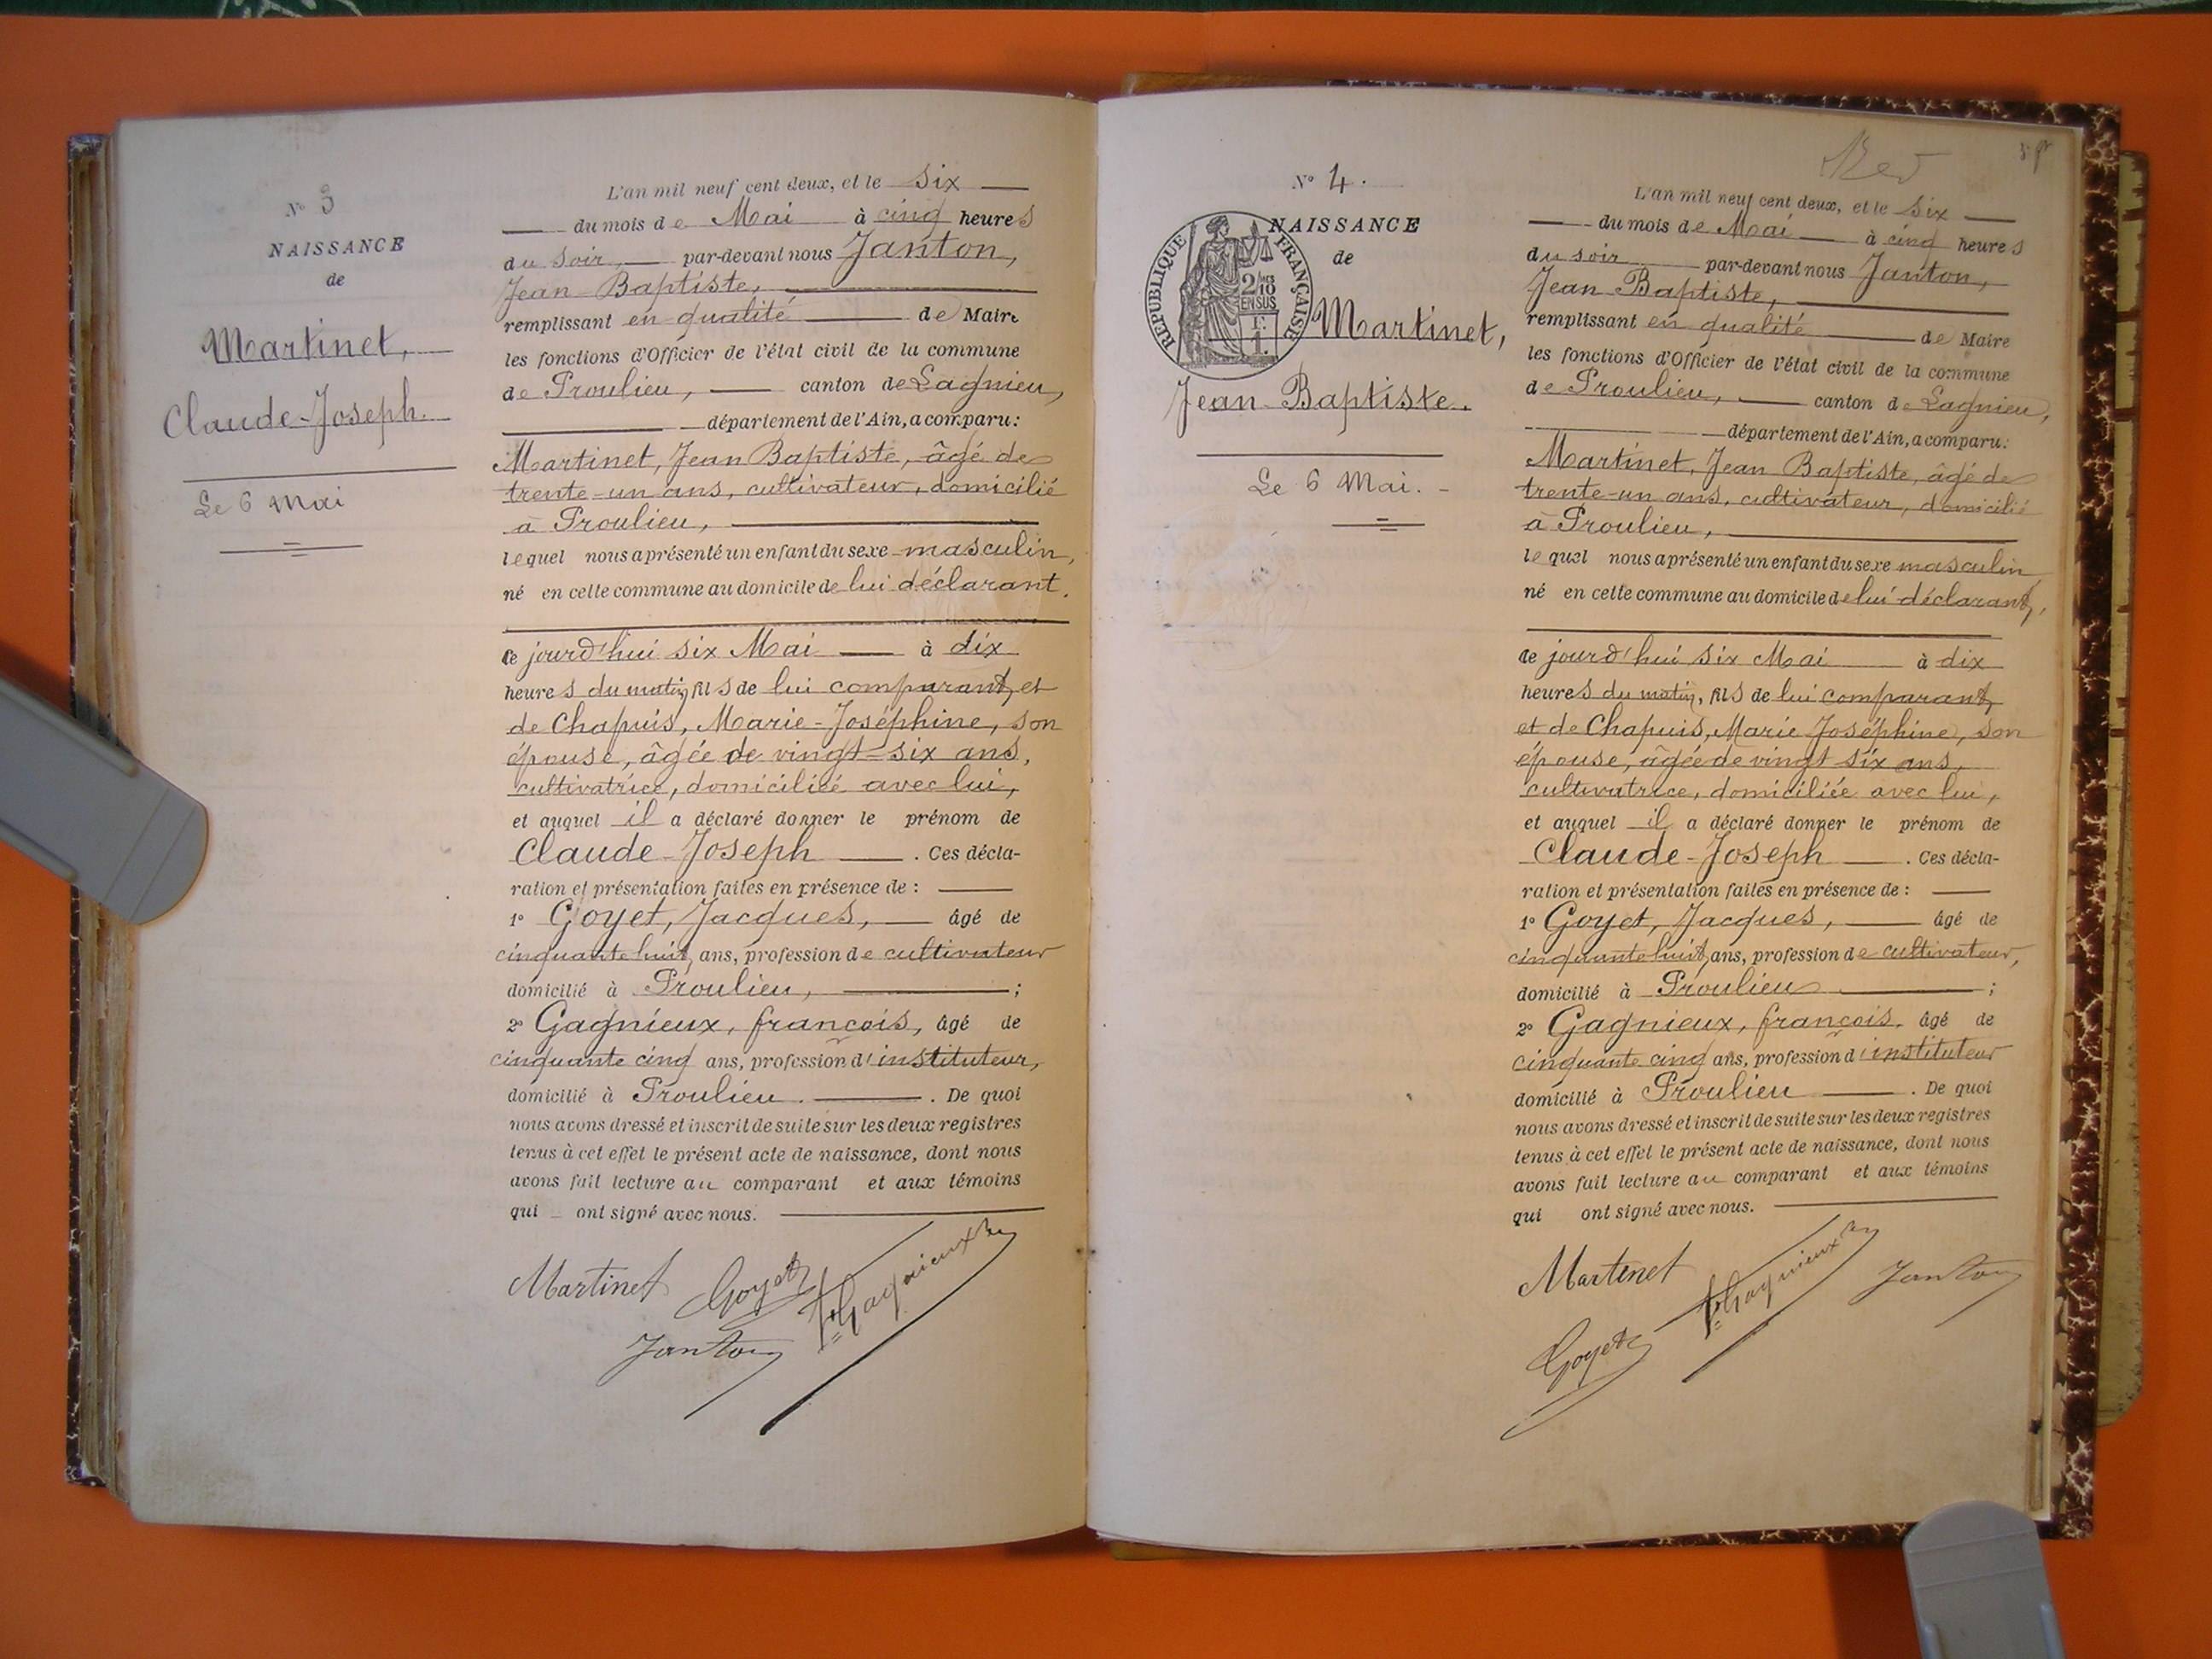 N° 3
NAISSANCE
de
Martinet,
Claude-Joseph.
Le 6 Mai
L'an mil neuf cent deux, et le six
du mois de Mai à cinq heures
du soir, par-devant nous Janton,
Jean Baptiste,
remplissant en qualité de Maire
les fonctions d'Officier de l'état civil de la commune
de Proulieu, canton de Lagnieu,
département de l'Ain, a comparu:
Martinet, Jean Baptiste, âgé de
trente-un ans, cultivateur, domicilié
à Proulieu,
lequel nous a présenté un enfant du sexe masculin,
né en cette commune au domicile de lui déclarant.
ce jourd'hui six Mai à dix
heures du matin, fils de lui comparant, et
de Chapuis, Marie-Joséphine, son
épouse, âgée de vingt-six ans,
cultivatrice, domiciliée avec lui,
et auquel il a déclaré donner le prénom de
Claude-Joseph. Ces décla-
ration et présentation faites en présence de :
1° Goyet, Jacques, âgé de
cinquante huit, ans, profession de cultivateur
domicilié à Proulieu, ;
2° Gagnieux, françois, âgé de
cinquante cinq ans, profession d'instituteur,
domicilié à Proulieu. . De quoi
nous avons dressé et inscrit de suite sur les deux registres
tenus à cet effet le présent acte de naissance, dont nous
avons fait lecture au comparant et aux témoins
qui ont signé avec nous.
Martinet Goyet fr Gagnieux
Janton
N° 4.
NAISSANCE
de
RÉPUBLIQUE FRANÇAISE
2/10
EN SUS
Martinet,
Jean-Baptiste.
Le 6 Mai.
L'an mil neuf cent deux, et le six
du mois de Mai à cinq heures
du soir par-devant nous Janton,
Jean-Baptiste,
remplissant en qualité de Maire
les fonctions d'Officier de l'état civil de la commune
de Proulieu, canton de Lagnieu,
département de l'Ain, a comparu:
Martinet, Jean Baptiste, âgé de
trente-un ans, cultivateur, domicilié
à Proulieu,
lequel nous a présenté un enfant du sexe masculin
né en cette commune au domicile de lui déclarant,
ce jourd'hui six Mai à dix
heures du matin, fils de lui comparant,
et de Chapuis, Marie Joséphine, son
épouse, âgée de vingt six ans,
cultivatrice, domiciliée avec lui,
et auquel il a déclaré donner le prénom de
Claude-Joseph. Ces décla-
ration et présentation faites en présence de :
1° Goyet, Jacques, âgé de
cinquante huit, ans, profession de cultivateur,
domicilié à Proulieu ;
2° Gagnieux, françois, âgé de
cinquante cinq ans, profession d'instituteur
domicilié à Proulieu. De quoi
nous avons dressé et inscrit de suite sur les deux registres
tenus à cet effet le présent acte de naissance, dont nous
avons fait lecture au comparant et aux témoins
qui ont signé avec nous.
Martinet fr Gagnieux Janton
Goyet